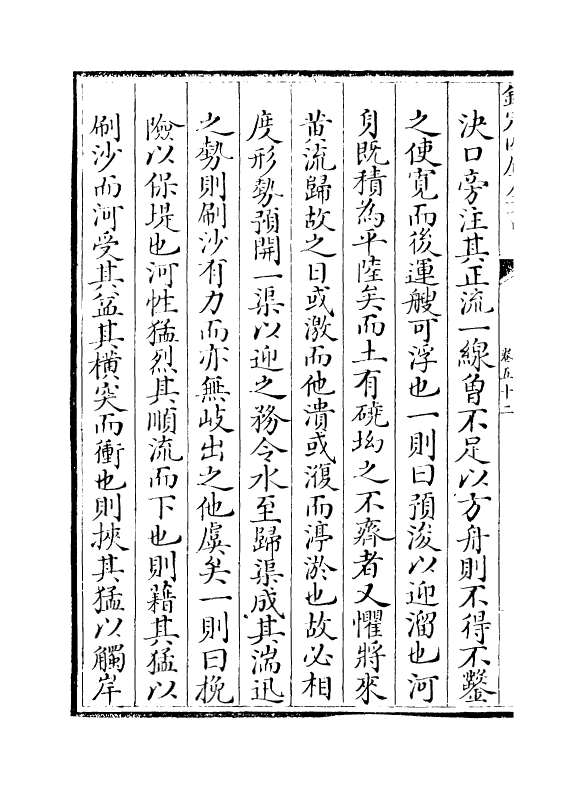 決口旁注其正流一線曽不足以方舟則不得不鑿
之使寛而後運艘可浮也一則曰預浚以迎溜也河
身既積為平陸矣而土有磽坳之不齊者又懼將來
黄流歸故之日或激而他潰或澓而渟淤也故必相
度形勢預開一渠以迎之務令水至歸渠成其湍迅
之勢則刷沙有力而亦無岐出之他虞矣一則曰挽
險以保堤也河性猛烈其順流而下也則藉其猛以
刷沙而河受其益其橫突而衝也則挾其猛以觸岸
卷五十二